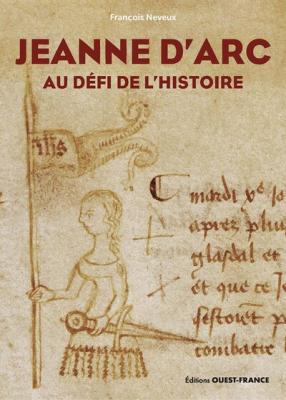 François Neveux
JEANNE D'ARC
AU DÉFI DE L'HISTOIRE
ihs
mardi
apres plu
glasdal et
et que ce
combatre
Éditions OUEST-FRANCE